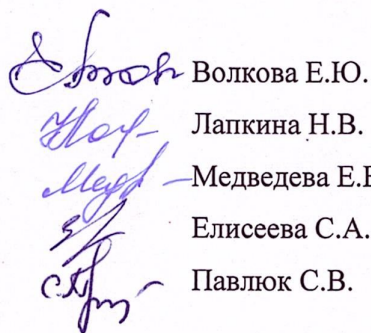 Волкова Е.Ю.
Лапкина Н.В.
Медведева Е.В
Елисеева С.А.
Павлюк С.В.